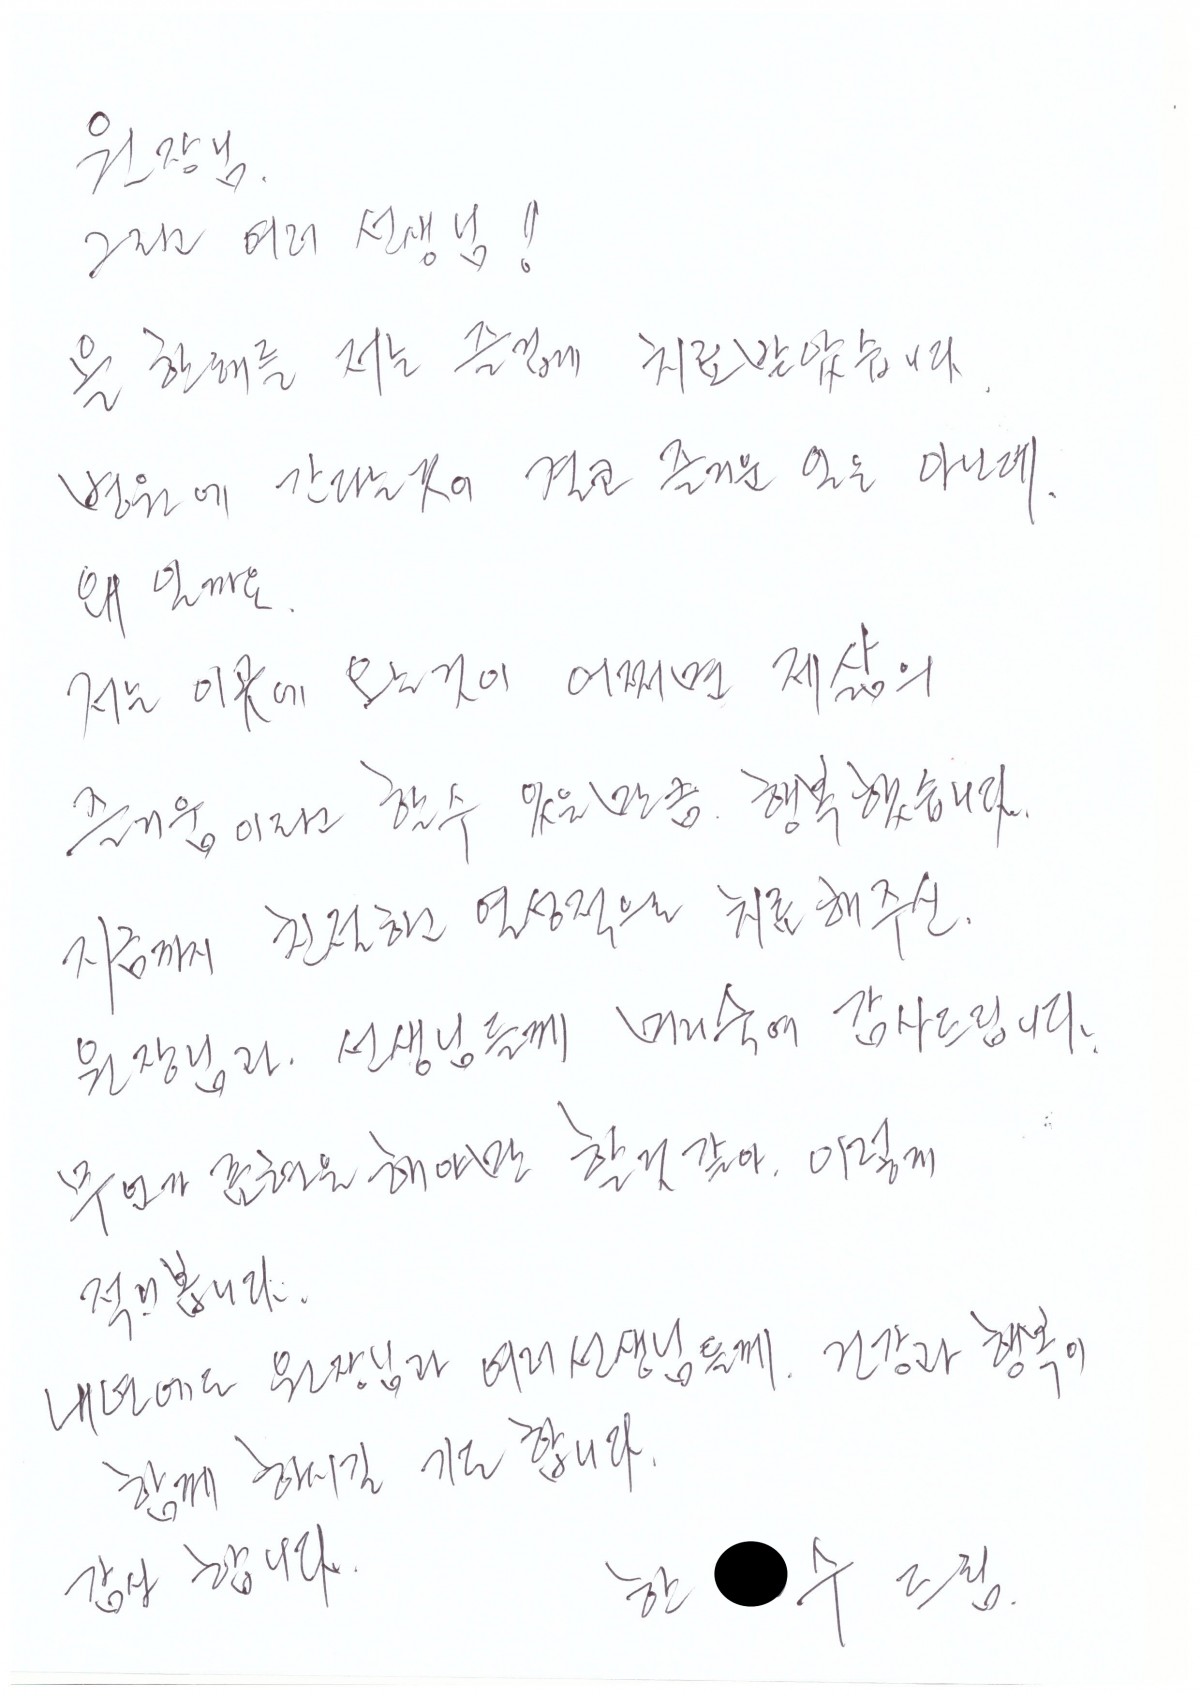 원장님.
그리고 여러 선생님!
올 한해를 저는 즐겁게 치료받았습니다.
병원에 간다는것이 결코 즐거운 일은 아닌데.
왜 일까요.
저는 이곳에 오는것이 어쩌면 제삶의
즐거움이라고 할수 있을만큼. 행복했습니다.
지금까지 친절하고 열성적으로 치료해주신.
원장님과. 선생님들께 머리숙여 감사드립니다.
무언가 표현을 해야만 할것 같아. 이렇게
적어봅니다.
내년에도 원장님과 여러선생님들께. 건강과 행복이
함께 하시길 기도합니다.
감사 합니다.
한 수 드림.